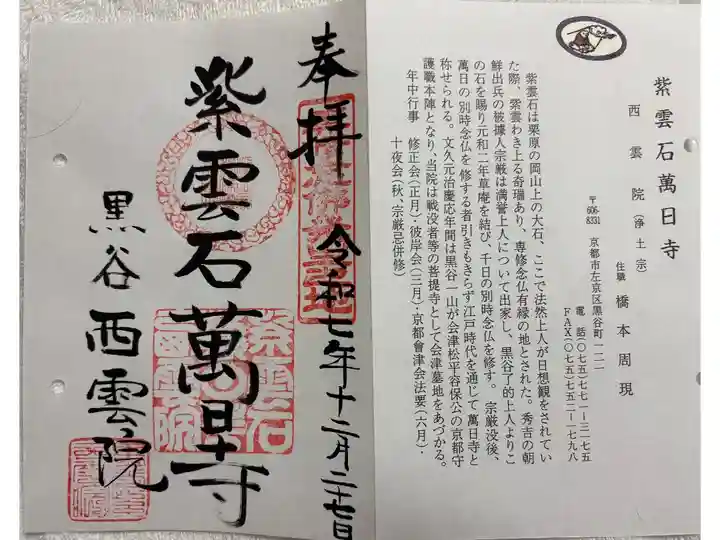 奉拝
令和七年十二月二十七日
紫雲石萬日寺
黒谷西雲院
紫雲石
西雲院
紫雲石萬日寺
西雲院(浄土宗)
住職 橋本周現
〒606-8331 京都市左京区黒谷町一二一
電話(〇七五)七七一ー三一七五
FAX(〇七五)七五二ー一七九八
紫雲石は栗原の岡山上の大石、ここで法然上人が日想観をされてい
た際、紫雲わき上る奇瑞あり、専修念仏有縁の地とされた。秀吉の朝
鮮出兵の被擄人宗厳は満誉上人について出家し、黒谷了的上人よりこ
の石を賜り元和二年草庵を結び、千日の別時念仏を修す。宗厳没後、
萬日の別時念仏を修する者引きもきらず江戸時代を通じて萬日寺と
称せられる。文久元治慶応年間は黒谷一山が会津松平容保公の京都守
護職本陣となり、当院は戦没者等の菩提寺として会津墓地をあづかる。
年中行事 修正会(正月)・彼岸会(三月)・京都會津会法要(六月)・
十夜会(秋、宗厳忌併修)